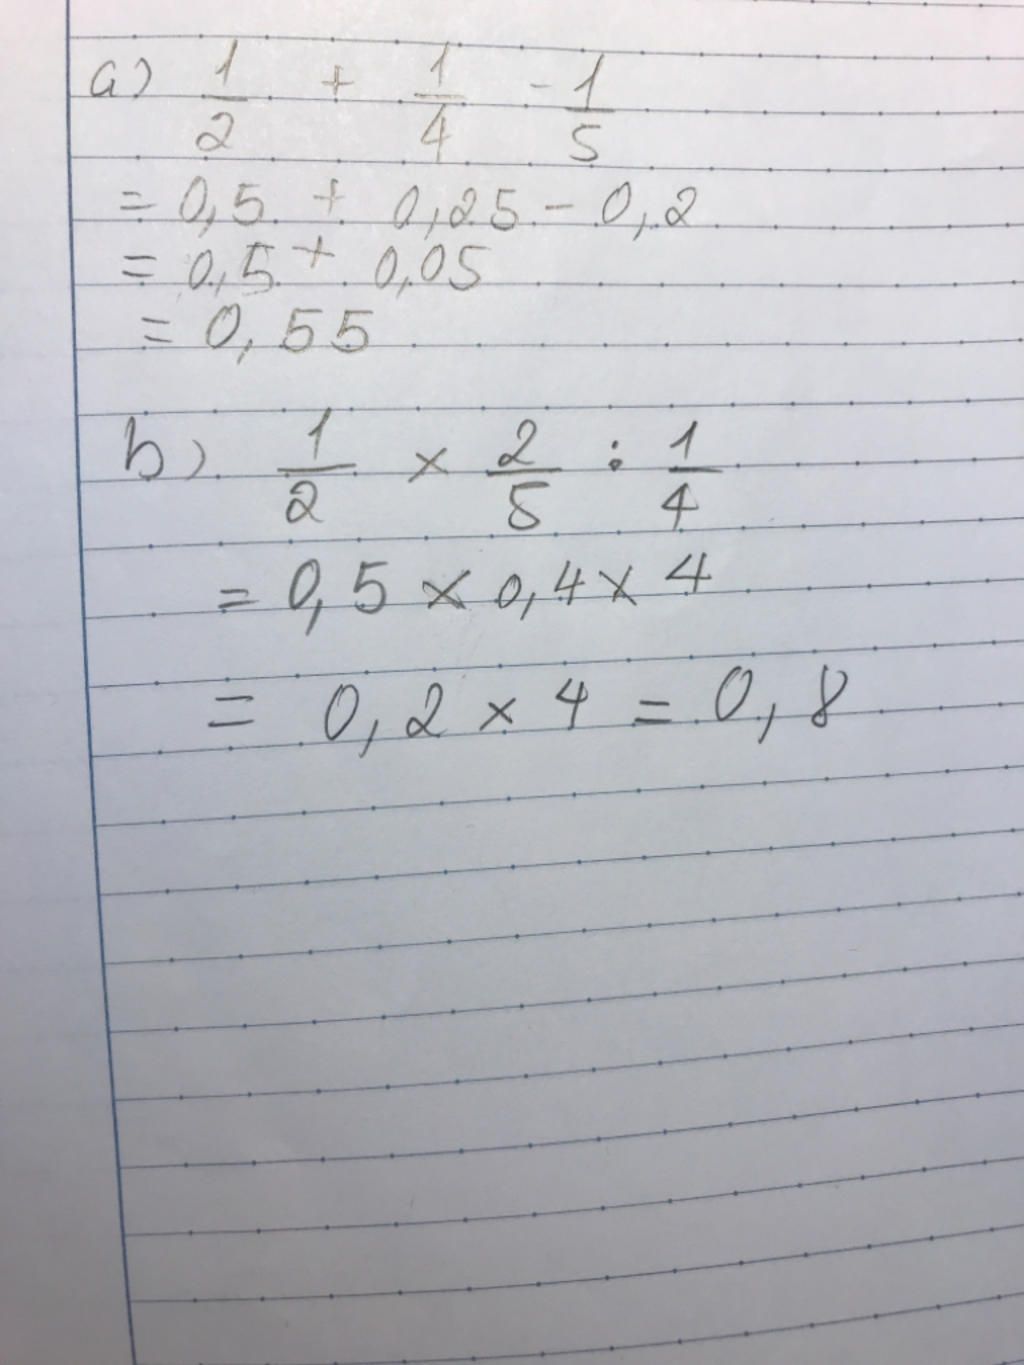 a) 1/2 + 1/4 - 1/5
= 0,5 + 0,25 - 0,2
= 0,5 + 0,05
= 0,55
b) 1/2 × 2/5 : 1/4
= 0,5 × 0,4 × 4
= 0,2 × 4 = 0,8